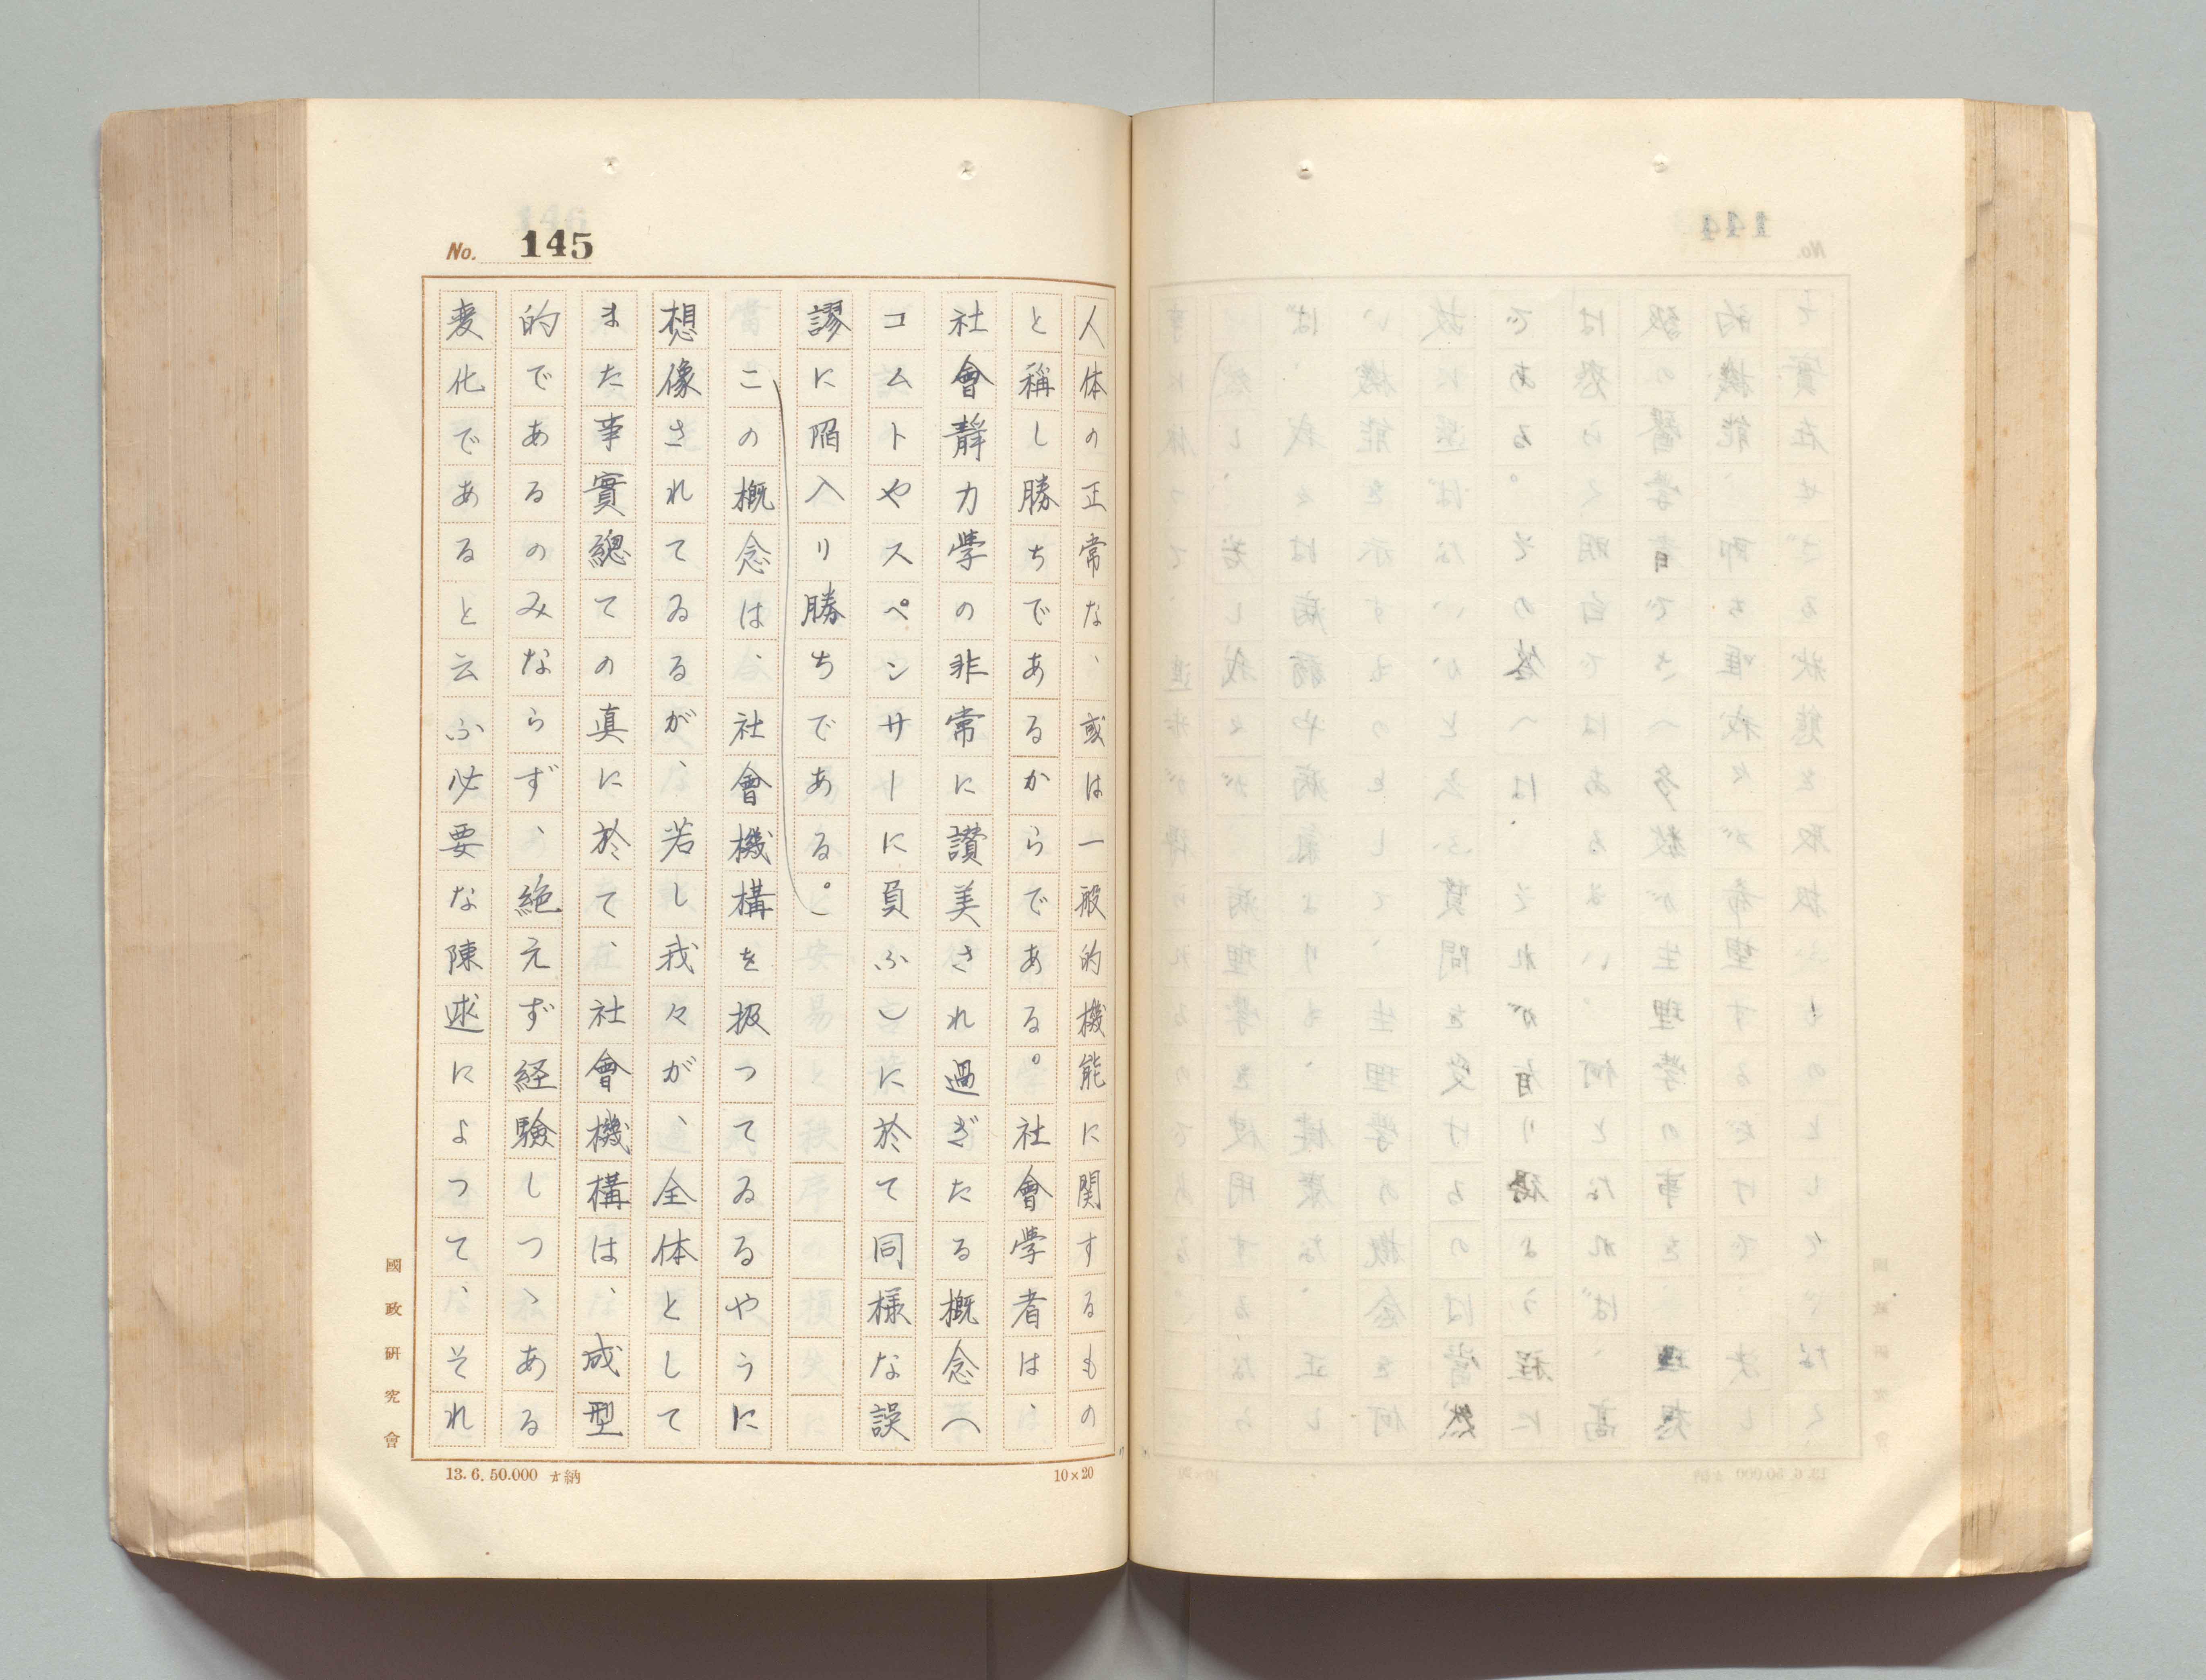 No. 145
人体の正常な、或は一般的機能に関するもの
と稱し勝ちであるからである。社會学者は、
社會靜力學の非常に讃美され過ぎたる概念へ
コムトやスペンサーに負ふ)に於て同様な誤
謬に陥入り勝ちである。
この概念は、社會機構を扱つてゐるやうに
想像されてゐるが、若し我々が、全体として
また事實總ての真に於て、社會機構は、成型
的であるのみならず、絶えず経驗しつゝある
変化であると云ふ必要な陳述によつて、それ
國政研究會
13.6.50.000 納
10×20